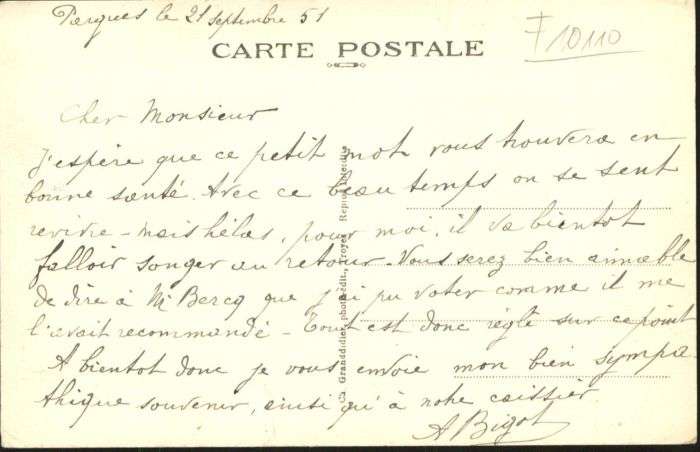 Pargues le 21 septembre 51
CARTE POSTALE
F10110
Cher Monsieur
J'espère que ce petit mot vous trouvera en
bonne santé. Avec ce beau temps on se sent
revivre - mais hélas, pour moi, il va bientot
falloir songer au retour - Vous serez bien aimable
de dire à Mr Bercq que j'ai pu voter comme il me
l'avait recommandé - Tout est donc réglé sur ce point
A bientot donc je vous envoie mon bien sympa
thique souvenir, ainsi qu'à notre caissier
A Bigot
Granddidier, phot.-édit., Troyes Repro. Interdite